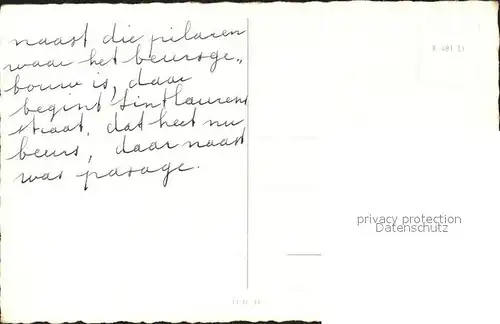 naast die pilaren
waar het beursge„
bouw is, daar
begint Sintlaurens
straat, dat heet nu
beurs, daar naast
was pasage.
privacy protection
Datenschutz